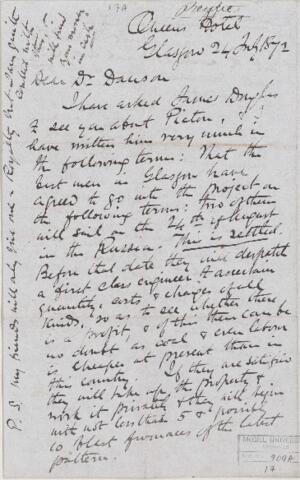 Queens Hotel
Glasgow 24 July 1872
Dear Dr Dawson
I have asked James Douglas
to see you about Pictou, I
have written him very much in
the following terms: That the
best men in Glasgow have
agreed to go into the project on
the following terms: two of them
will sail on the 24th of August
in the Russia. This is settled.
Before that date they will despatch
a first class engineer to ascertain
quantity, costs & charges of all
kinds, so as to see whether there
is a profit & of this there can be
no doubt as coal & even labour
is cheaper at present than in
this country. If they are satisfied
they will take up the property &
work it privately & they will begin
with not less than 5 & possibly
10 blast furnaces of the latest
pattern.
P.S. My friends will only give one s Royalty but I am quite
content with
this, &
will find
your money
in cash
17A
McGILL UNIVERSITY
909A
17